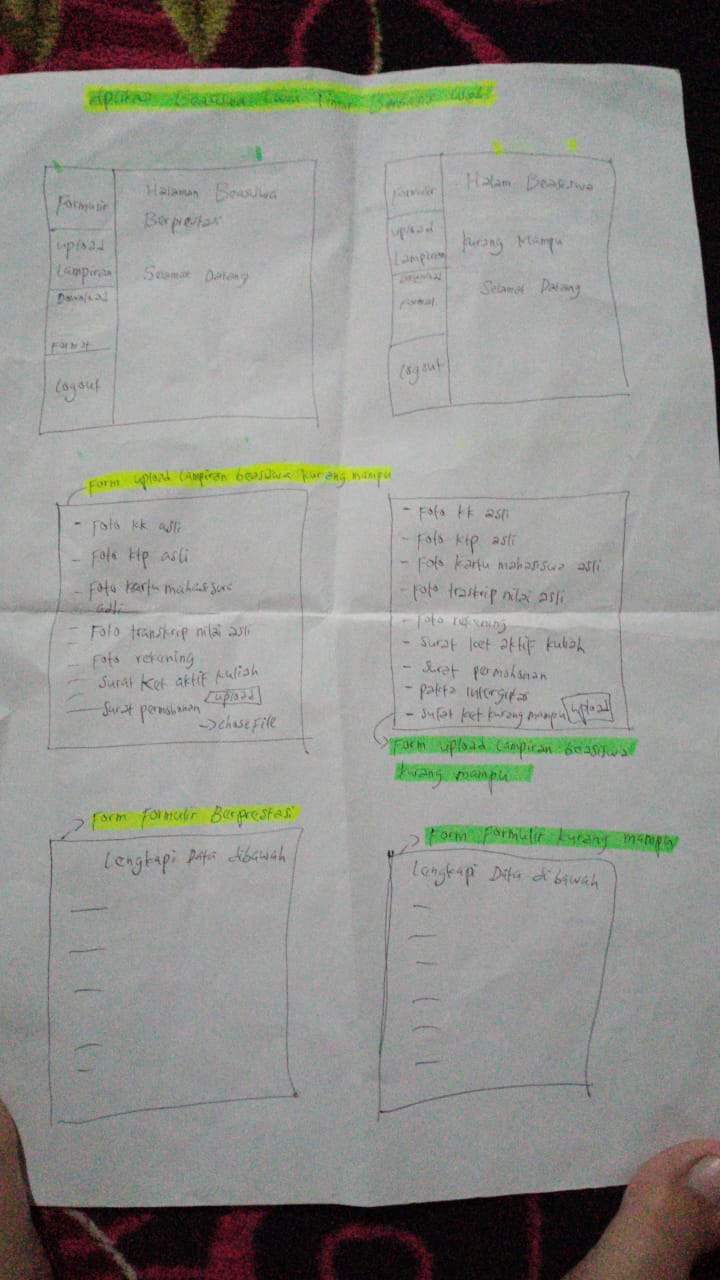 Aplikasi Beasiswa Luwu Timur Berbasis Web
Formulir
upload
Lampiran
Download
Format
Logout
Halaman Beasiswa
Berprestasi
Selamat Datang
Formulir
upload
Lampiran
Download
Format
Logout
Halam Beasiswa
kurang Mampu
Selamat Datang
Form upload Lampiran beasiswa kurang mampu
- Foto kk asli
- Foto ktp asli
- Foto kartu mahasiswa
asli
- Foto transkrip nilai asli
- Foto rekening
- Surat Ket aktif kuliah
- Surat permohonan
upload
→ chose File
- Foto kk asli
- Foto ktp asli
- Foto kartu mahasiswa asli
- Foto traskrip nilai asli
- Foto rekening
- Surat ket aktif kuliah
- Surat permohonan
- pakta
- Surat ket kurang mampu
upload
Form upload Lampiran beasiswa
kurang mampu
Form Formulir Berprestasi
Lengkapi Data dibawah
Form Formulir kurang mampu
Lengkapi Data dibawah